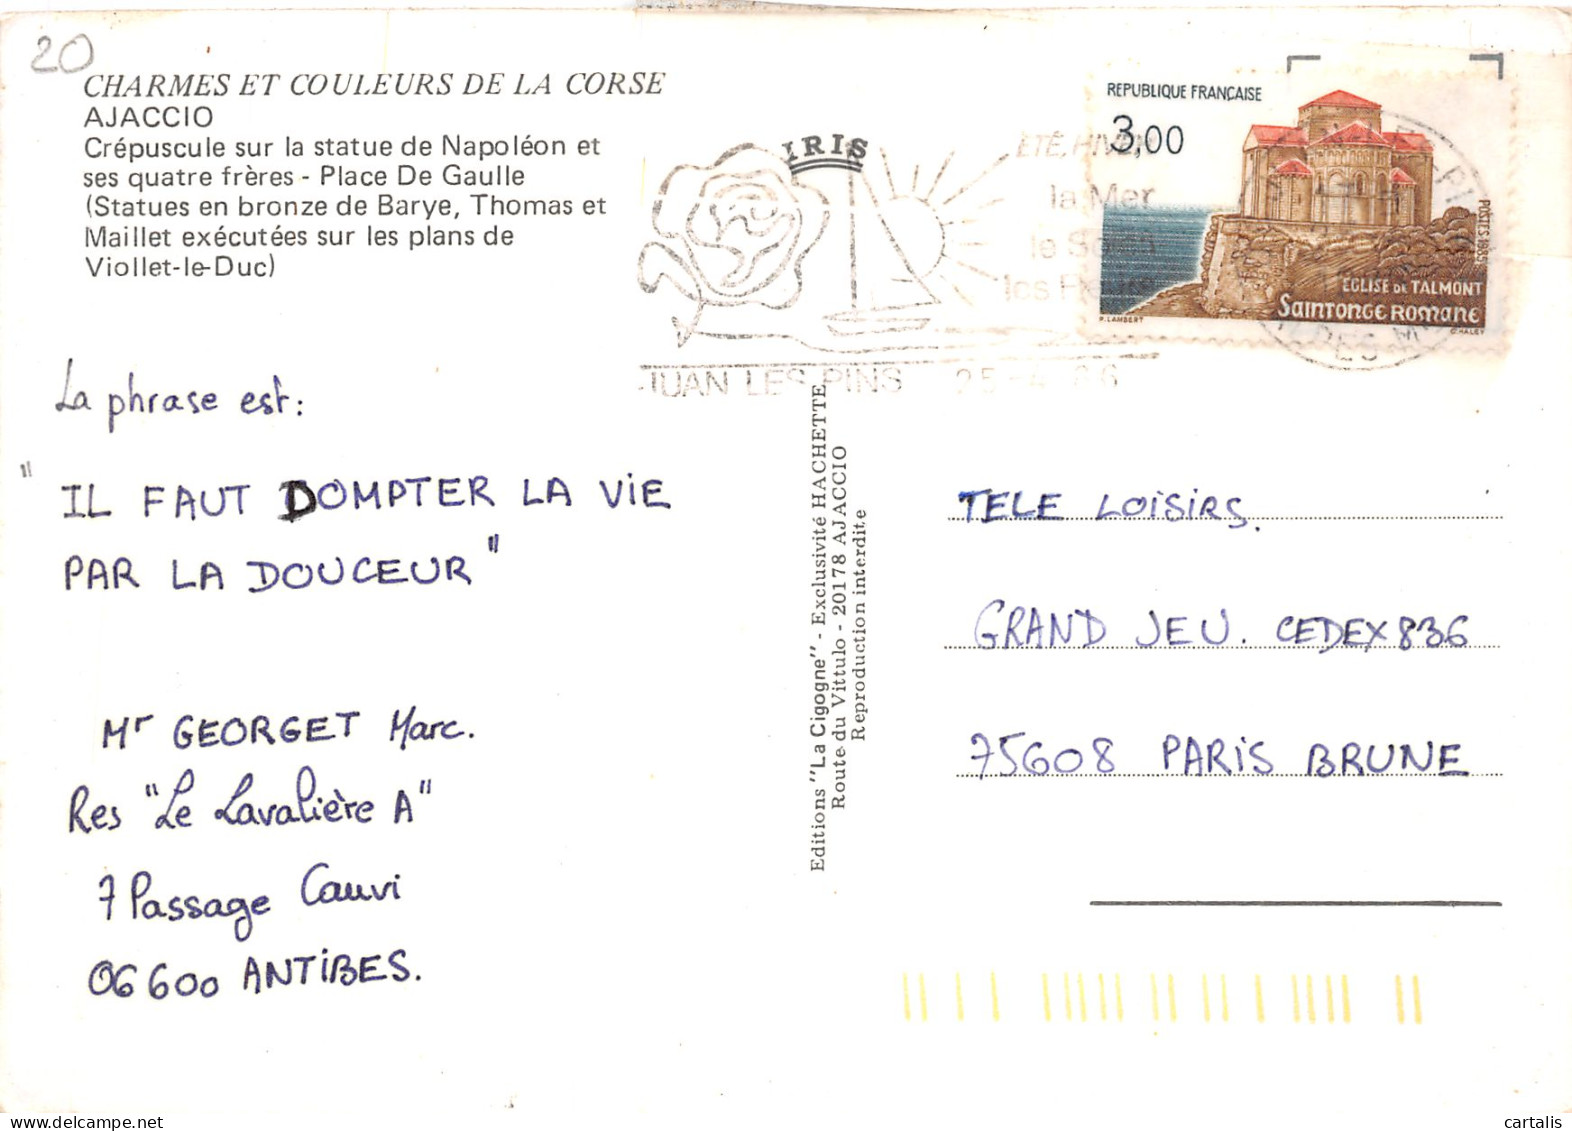 20
CHARMES ET COULEURS DE LA CORSE
AJACCIO
Crépuscule sur la statue de Napoléon et
ses quatre frères - Place De Gaulle
(Statues en bronze de Barye, Thomas et
Maillet exécutées sur les plans de
Viollet-le-Duc)
IRIS
ÉTÉ, HIVER
la Mer
le Soleil
les
JUAN LES PINS 25-4 86
REPUBLIQUE FRANÇAISE
3,00
POSTES 1985
EGLISE DE TALMONT
SAINTONGE ROMANE
P. LAMBERT
C. HALEY
La phrase est:
" IL FAUT DOMPTER LA ViE
PAR LA DOUCEUR "
Mr GEORGET Marc.
Res "Le Lavalière A"
7 Passage Cauvi
06600 ANTiBES.
Editions "La Cigogne" - Exclusivité HACHETTE
Route du Vittulo - 20178 AJACCIO
Reproduction interdite
TELE LOiSiRS.
GRAND JEU. CEDEX 836
75608 PARiS BRUNE
cartalis
delcampe.net